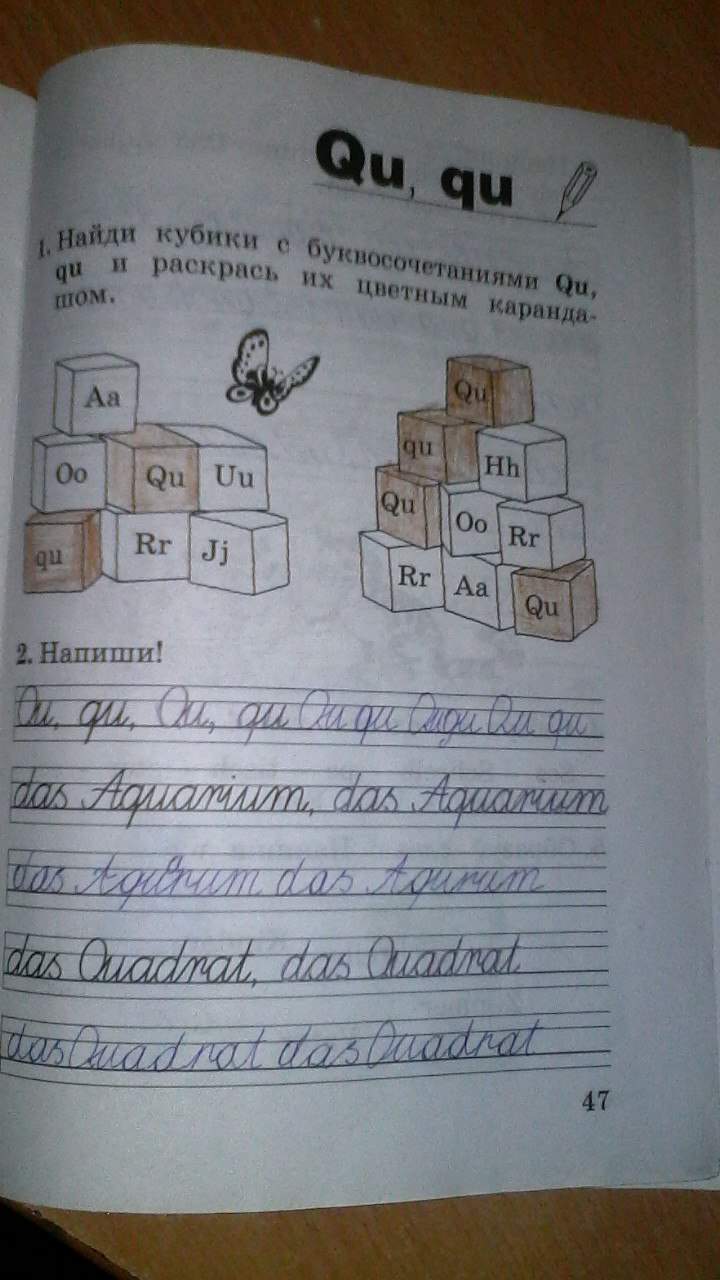 Qu, qu
1. Найди кубики с буквосочетаниями Qu,
qu и раскрась их цветным каранда-
шом.
Aa
Oo Qu Uu
qu Rr Jj
Qu
qu Hh
Qu Oo Rr
Rr Aa Qu
2. Напиши!
Qu, qu, Qu, qu Qu qu Qu qu Qu qu
das Aquarium, das Aquarium
das das Aqurum
das Quadrat, das Quadrat
das Quadrat das Quadrat
47